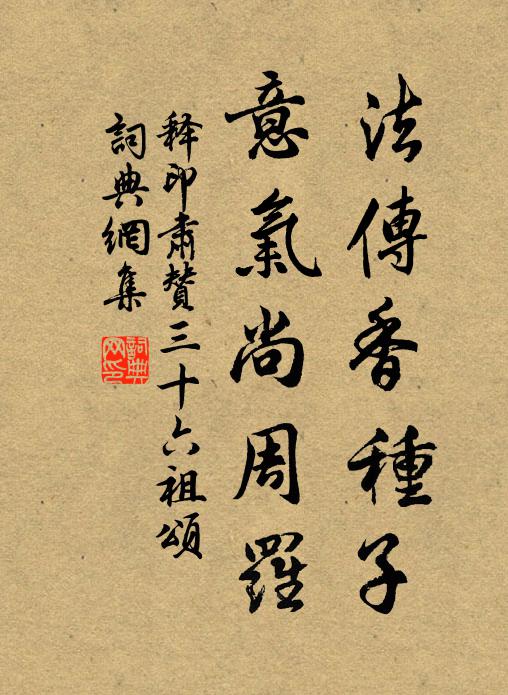 法傳香種子
意氣尚周羅
释印肅贊三十六祖頌
詞典網集
詞典網印